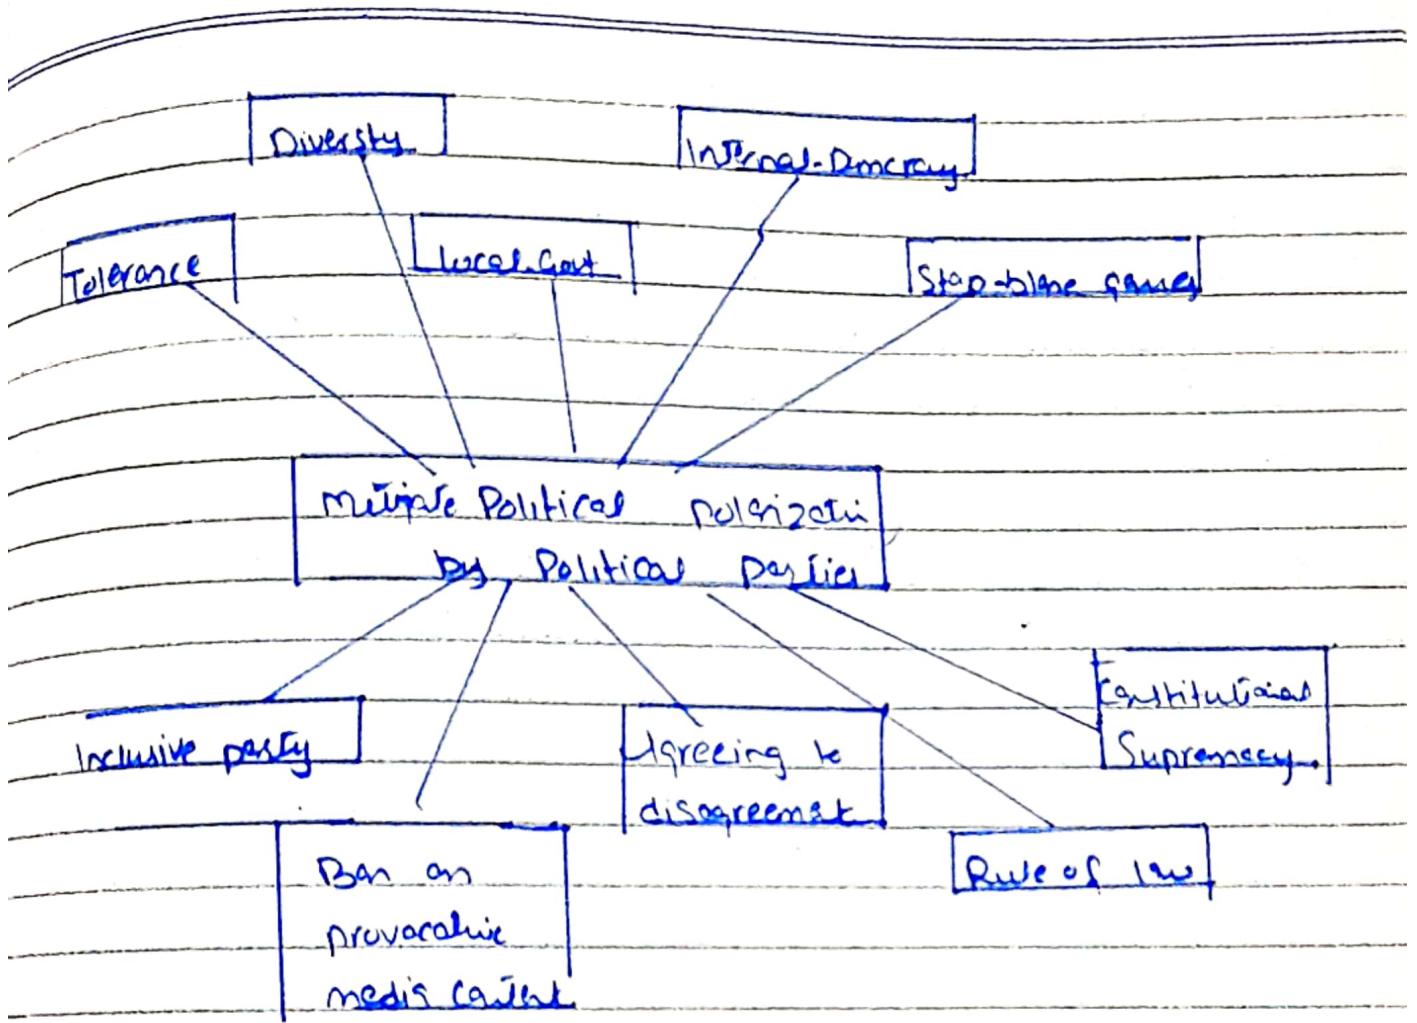 Diversty
Internal-Democracy
Tolerance
Local-Govt
Stop-blame games
Political polarization
by Political parties
Inclusive party
Agreeing to
disagreement
Constitutional
Supremacy.
Rule of law
Ban on
provocative
media content